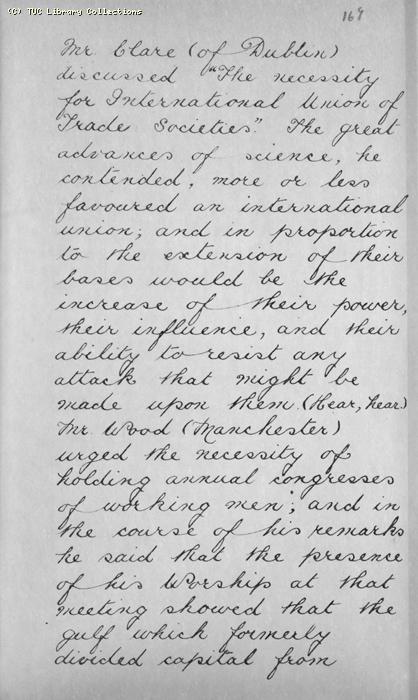 (C) TUC Library Collections
Mr. Clare (of Dublin)
discussed "The necessity
for International Union of
Trade Societies." The great
advances of science, he
contended, more or less
favoured an international
union; and in proportion
to the extension of their
bases would be the
increase of their power,
their influence, and their
ability to resist any
attack that might be
made upon them. (Hear, hear.)
Mr. Wood (Manchester)
urged the necessity of
holding annual congresses
of working men; and in
the course of his remarks
he said that the presence
of his Worship at that
meeting showed that the
gulf which formerly
divided capital from